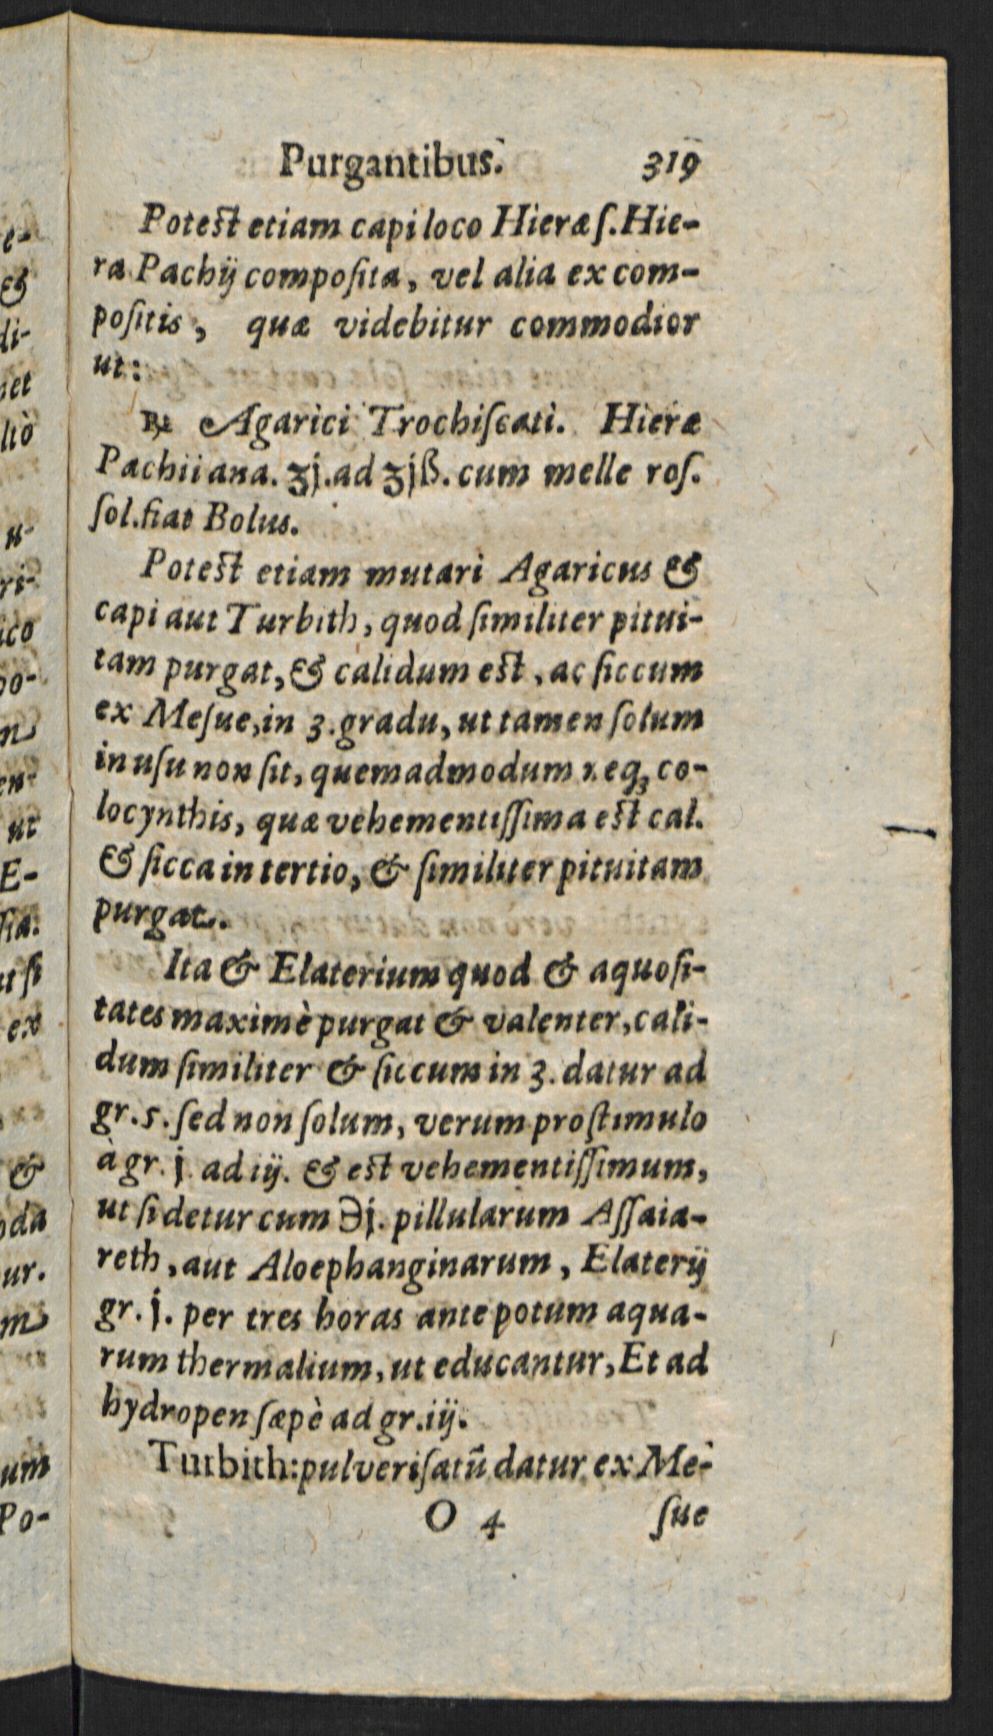 Purgantibus. 319
Potest etiam capi loco Hieræ ſ. Hie-
ra Pachij compoſita, vel alia ex com-
poſitis, quæ videbitur commodior
ut:
℞ Agarici Trochiſcati. Hieræ
Pachii ana. ʒj. ad ʒjß. cum melle roſ.
ſol. fiat Bolus.
Potest etiam mutari Agaricus &
capi aut Turbith, quod ſimiliter pitui-
tam purgat, & calidum est, ac ſiccum
ex Meſue, in 3. gradu, ut tamen ſolum
in uſu non ſit, quemadmodum neqȝ co-
locynthis, quæ vehementiſſima est cal.
& ſicca in tertio, & ſimiliter pituitam
purgat.
Ita & Elaterium quod & aquoſi-
tates maximè purgat & valenter, cali-
dum ſimiliter & ſiccum in 3. datur ad
gr. 5. ſed non ſolum, verum pro ſtimulo
à gr. j. ad ij. & est vehementiſſimum,
ut ſi detur cum ℈j. pillularum Aſſaia-
reth, aut Aloephanginarum, Elaterij
gr. j. per tres horas ante potum aqua-
rum thermalium, ut educantur, Et ad
hydropen ſæpè ad gr. iij.
Turbith: pulveriſatũ datur ex Me-
O 4 ſue
e-
&
di-
net
ltò
u-
ri-
ico
po-
m
en-
ut
E-
ſia.
ut ſi
ex
&
oda
ur.
m
um
Po-